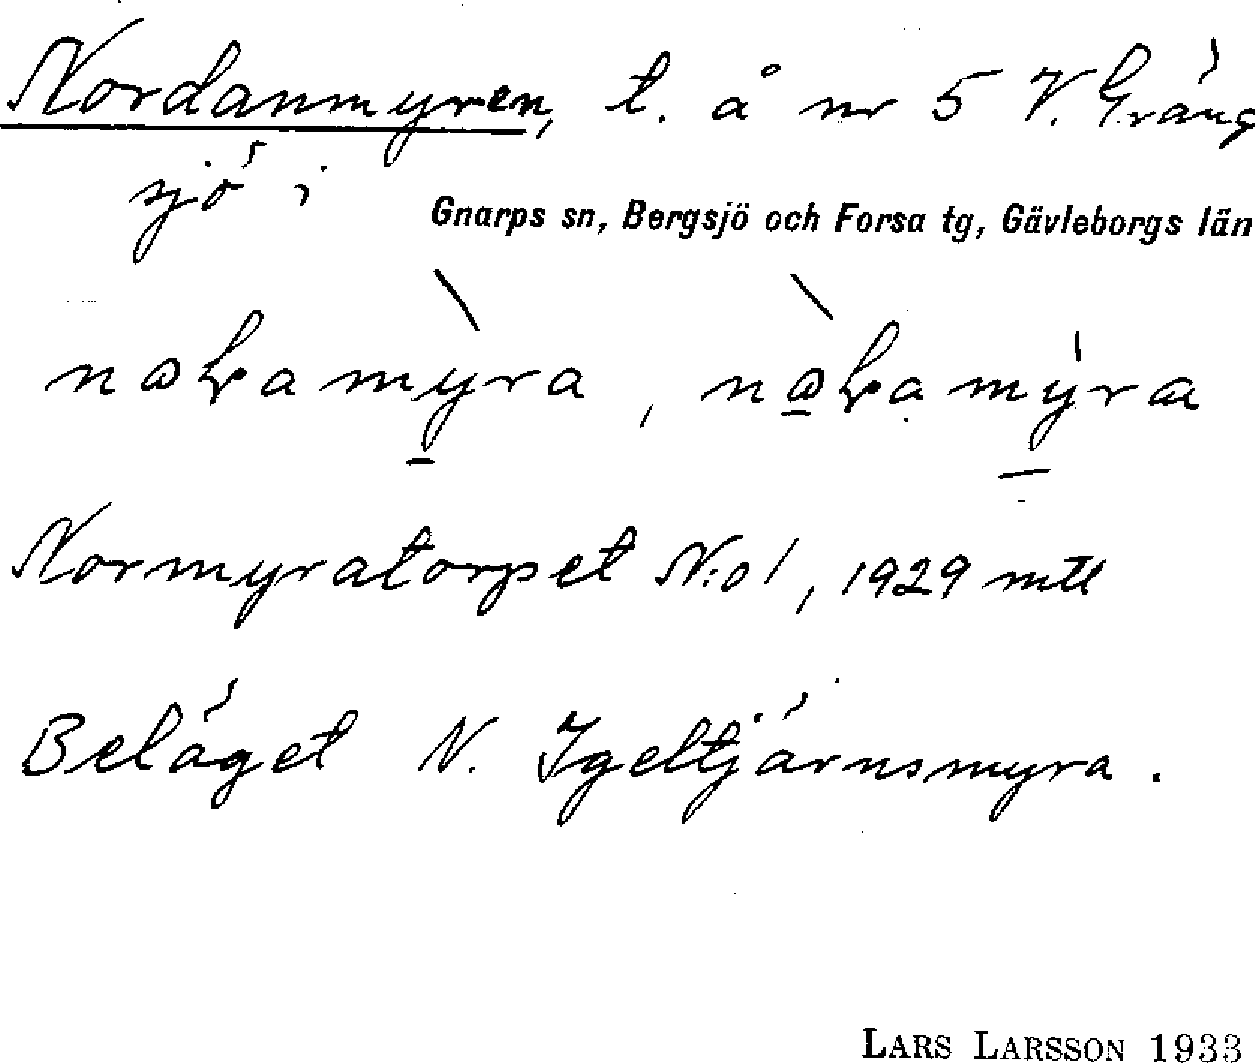 Nordanmyren, t. å nr 5 V. Gräng
sjö i
Gnarps sn, Bergsjö och Forsa tg, Gävleborgs län
Normyratorpet N:o 1, 1929 mtl
Beläget N. Igeltjärnsmyra.
LARS LARSSON 1933